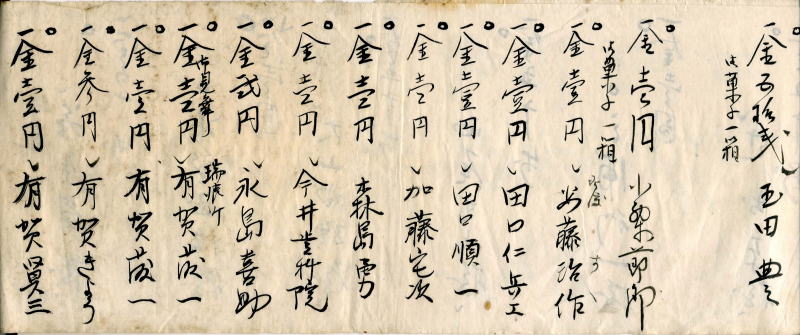 金五拾戋 玉田豊
御菓子一箱
金壱円 小栗節郎
御菓子一箱
一金壹円 安藤治作
一金壹円 田口仁兵エ
一金壹円 田口順一
一金壱円 加藤宅次
一金壱円 森島勇
一金壱円 今井歯科院
一金弐円 永島喜助
御見舞
一金壱円 有賀茂一
一金壱円 有賀茂一
一金参円 有賀きよう
一金壹円 有賀貝三